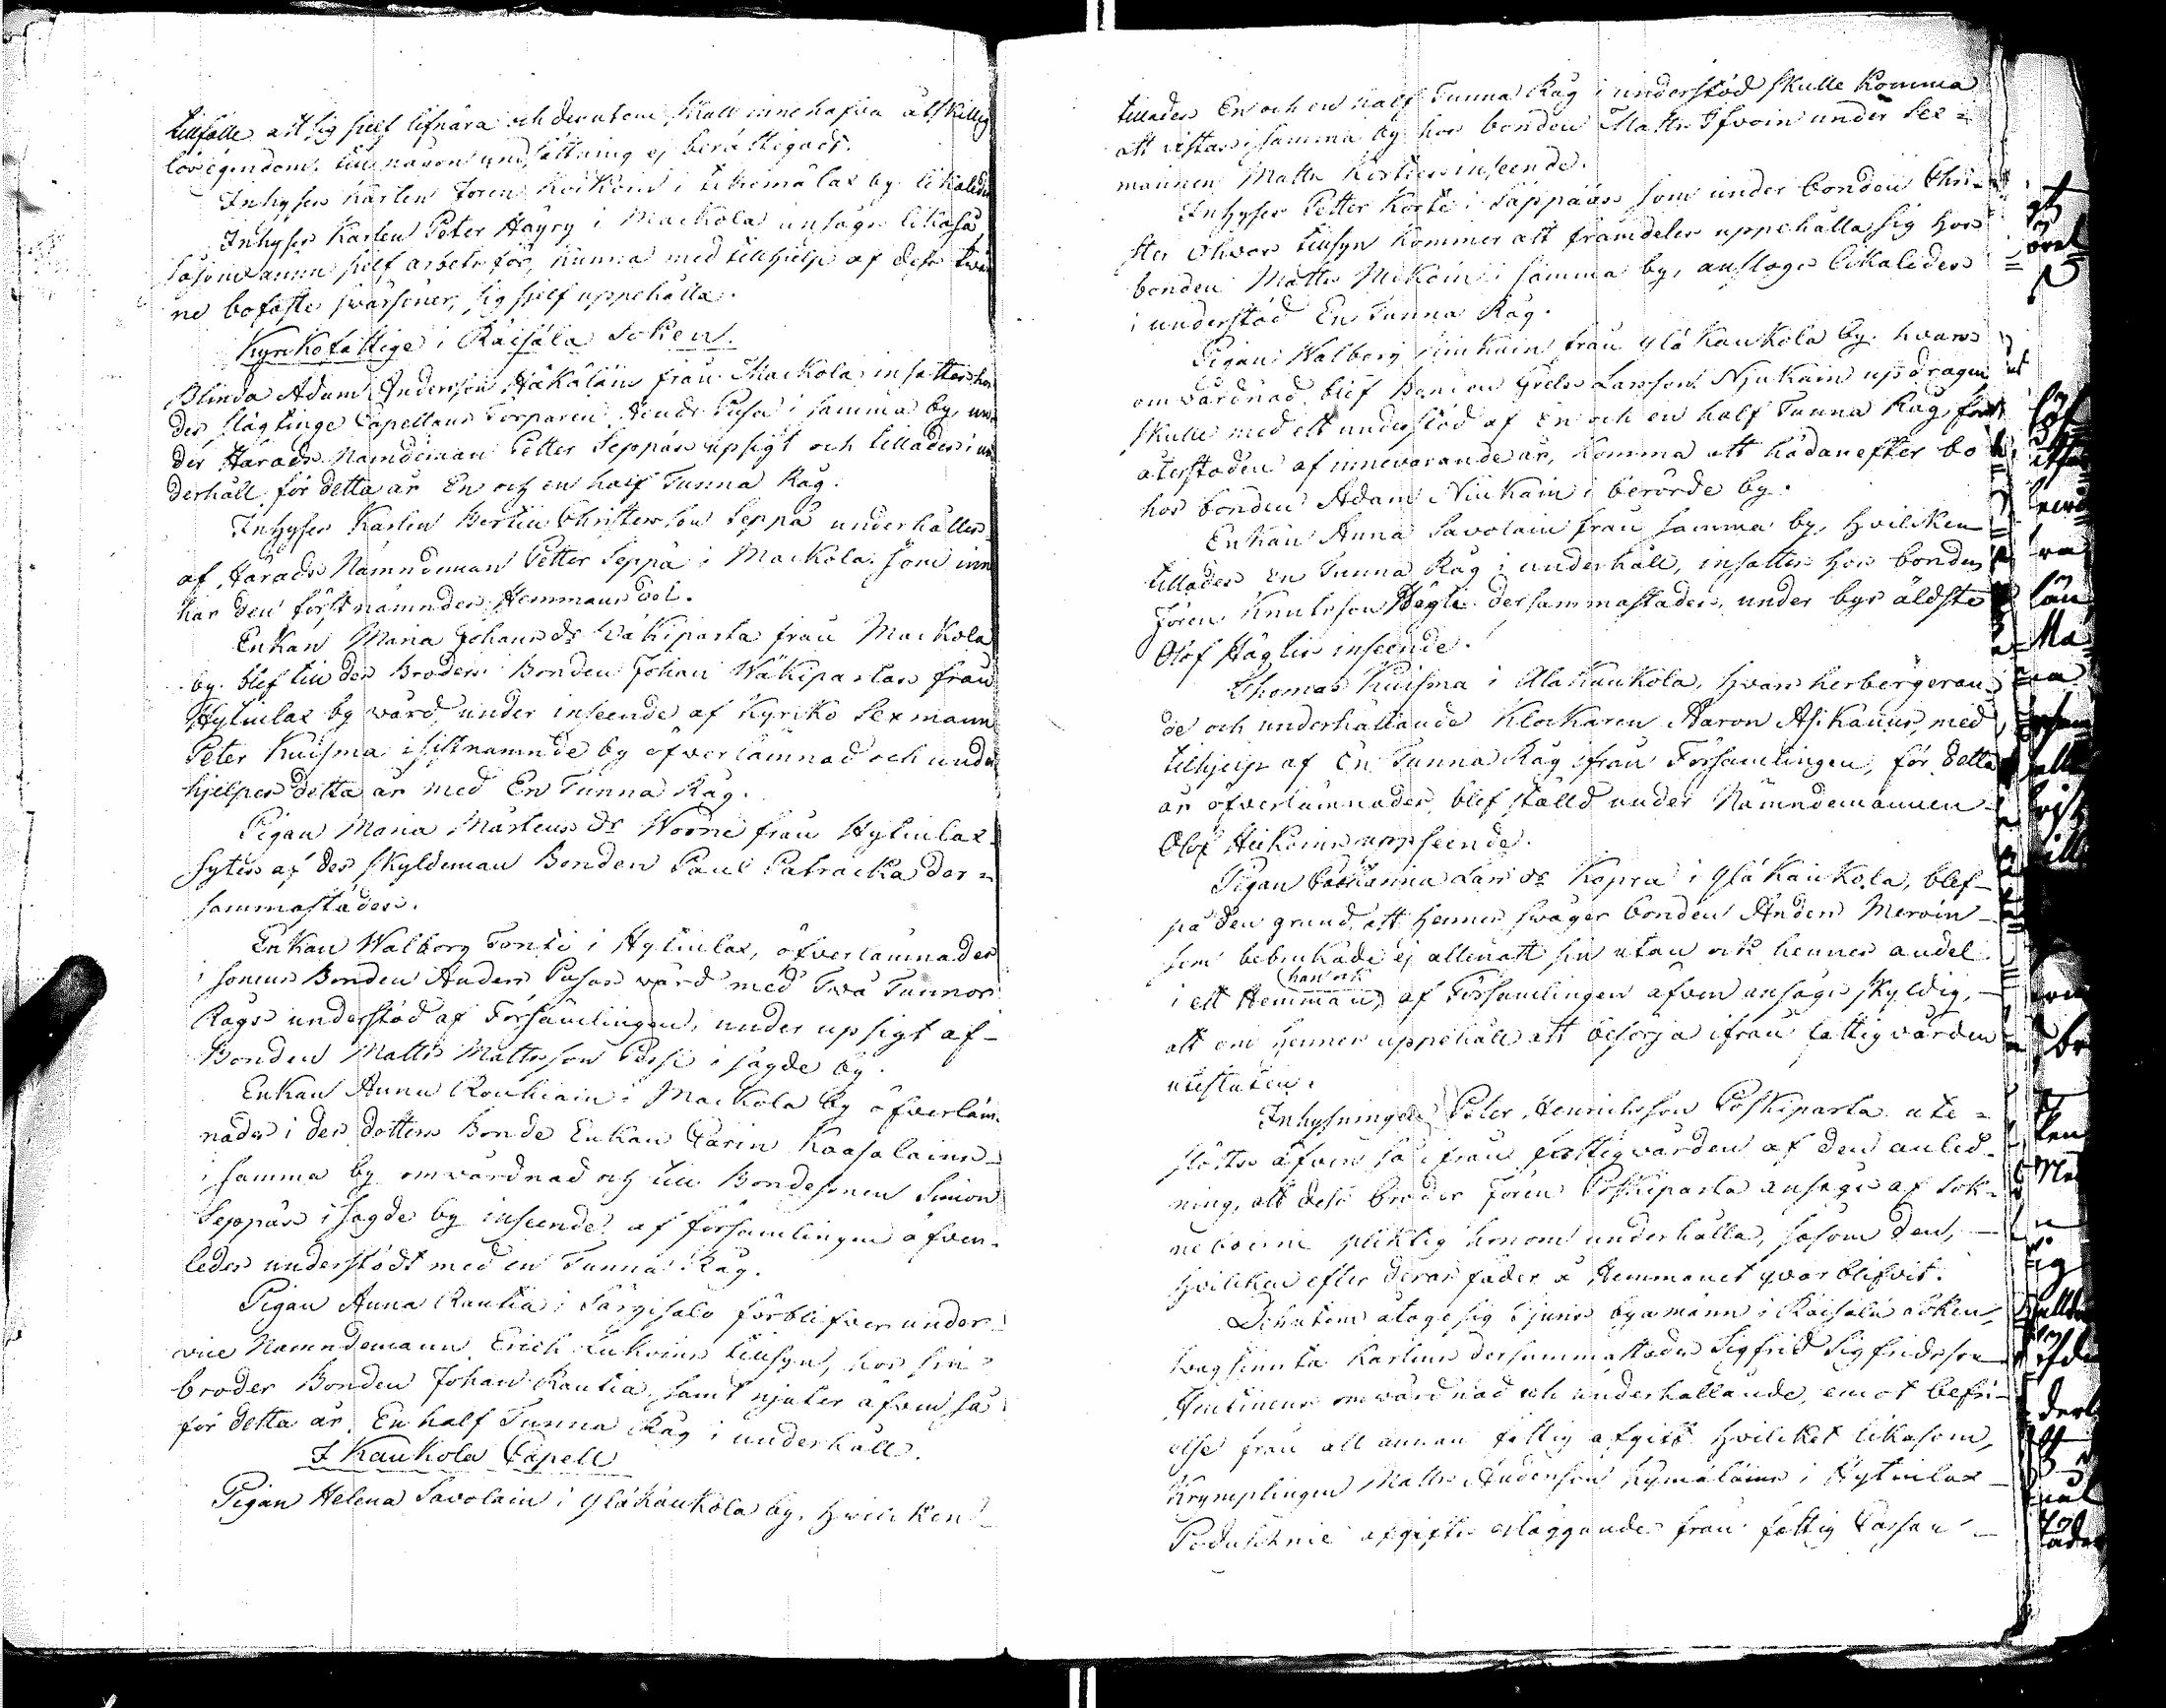 tillfälle att sig sielf lifnära och derutom skall innehafva åtskillig
lösegendom, till någon undsättning ej berättigadt.
Inhyses Karlen Jören Koikoin i Tihemälax by likaledes
Inhyses Karlen Peter Häyry i Mackola ansågs likaså,
såsom ännu sielf arbets för, kunna med tillhjelp af dess twän
ne bofaste swärsöner, sig sjelf uppehålla.
Kyrkofattige i Räisälä Soken.
Blinda Adam Andersson Häkäläin från Mackola insattes hos
des slägtinge Capellans Torparen Anders Pusa i samma by, un
der Härads Nämdeman Petter Seppäs upsigt och tillades i un
derhåll för detta år En och en half Tunna Råg.
Inhyses Karlen Bertin Christersson Seppä underhålles
af Härads Nämndeman Petter Seppä i Mackola, som inne
har den förstnämndes Hemmans del.
Enkan Maria Johansdr Wäkiparta från Mackola
by. blef till des Broders Bonden Johan Wäkipartas från
Hytinlax by wård, under inseende af Kyrko Sexmann
Peter Kuisma i sistnämnde by öfverlämnad och under
hjelpes detta år med En Tunna Råg.
Pigan Maria Mårtens dr Worne från Hytinlax
sytes af des skyldeman Bonden Paul Patracka der=
sammastädes.
Enkan Walborg Tonti i Hytinlax, öfverlämnades
i sonens Bonden Anders Pusas wård med Twå Tunnor
Rågs understöd af Församlingen, under upsigt af
Bonden Matts Mattsson Passi i sagde by.
Enkan Anna Roukiain i Mackola by öfverläm-
nades i des dotters Bonde Enkan Carin Kaasalains
i samma by omwårdnad och till Bondesonen Simon
Seppäs i sagde by inseende af församlingen äfven-
ledes understödt med en Tunna Råg.
Pigan Anna Rautia i Särgisalo förblifver under
vice Nämndemann Erich Lukoins tillsyn, hos sin
broder Bonden Johan Rautia, samt njuter äfven så
för detta år En half Tunna Råg i underhåll.
I Kaukola Capell
Pigan Helena Savolain i Yläkaukola by, hwilken
tillades En och en half Tunna Råg i understöd skulle komma
att vistas i samma by hos bonden Matts Ifvoin under Sex=
mannen Matts Kerties inseende.
Inhyses Petter Korte i Säppään som under bonden Chri-
ster Ohvos tillsyn kommer att framdeles uppehålla sig hos
bonden Matts Mikoin i samma by, anslogs likaledes
i understöd En Tunna Råg.
Pigan Walborg Sinkain från Ylä Kaukola by. hwars
omwårdnad blef Bonden Grels Larsson Njukain updragen
skulle med ett understöd af En och en half Tunna Råg för
återstoden af innevarande år, komma att hädanefter bo
hos bonden Adam Niukain i berörde by.
Enkan Anna Savolain från samma by, hvilken
tillades en Tunna Råg i underhåll, insattes hos bonden
Jören Knutsson Hägli dersammastädes, under bys äldste
Olof Häglis inseende.
Thomas Kuisma i Alakaukola, hvars herbergeran-
de och underhållande Klockaren Aaron Asikanus, med
tilhjelp af En Tunna Råg från Församlingen, för detta
år öfverlämnades, blef ställd under Nämndemannen
Olof Heikoins uppseende.
Pigan Catharina Lars dr Kopra i Ylä Kaukola, blef
på den grund att hennes swåger bonden Anders Mervin
som bebrukade ej allenast sin utan ock hennes andel
han ock
i ett Hemman, af Församlingen äfven ansågs skyldig,
att om hennes uppehälle att besörja ifrån fattigwården
utesluten.
Inhysningen Peter Henricksson Poskiparta ute=
slöts äfven så ifrån fattigwården af den anled-
ning, att dess broder Jören Poskiparta ansågs af Sok-
neboerne pliktig honom underhålla, såsom den,
hvilken efter deras fader å Hemmanet qvarblifvit.
Desutom åtogo sig Tjuris byamänn i Räisälä soken,
swagsinnta Karlens dersammastädes Sigfrid Sigfridsson
omwårdnad och underhållande, emot befri-
else från all annan fattig afgift hvilket likasom,
Krymplingen Matts Andersson Kymäläins i Hytinlax
afgifts erläggande från fattig Cassan